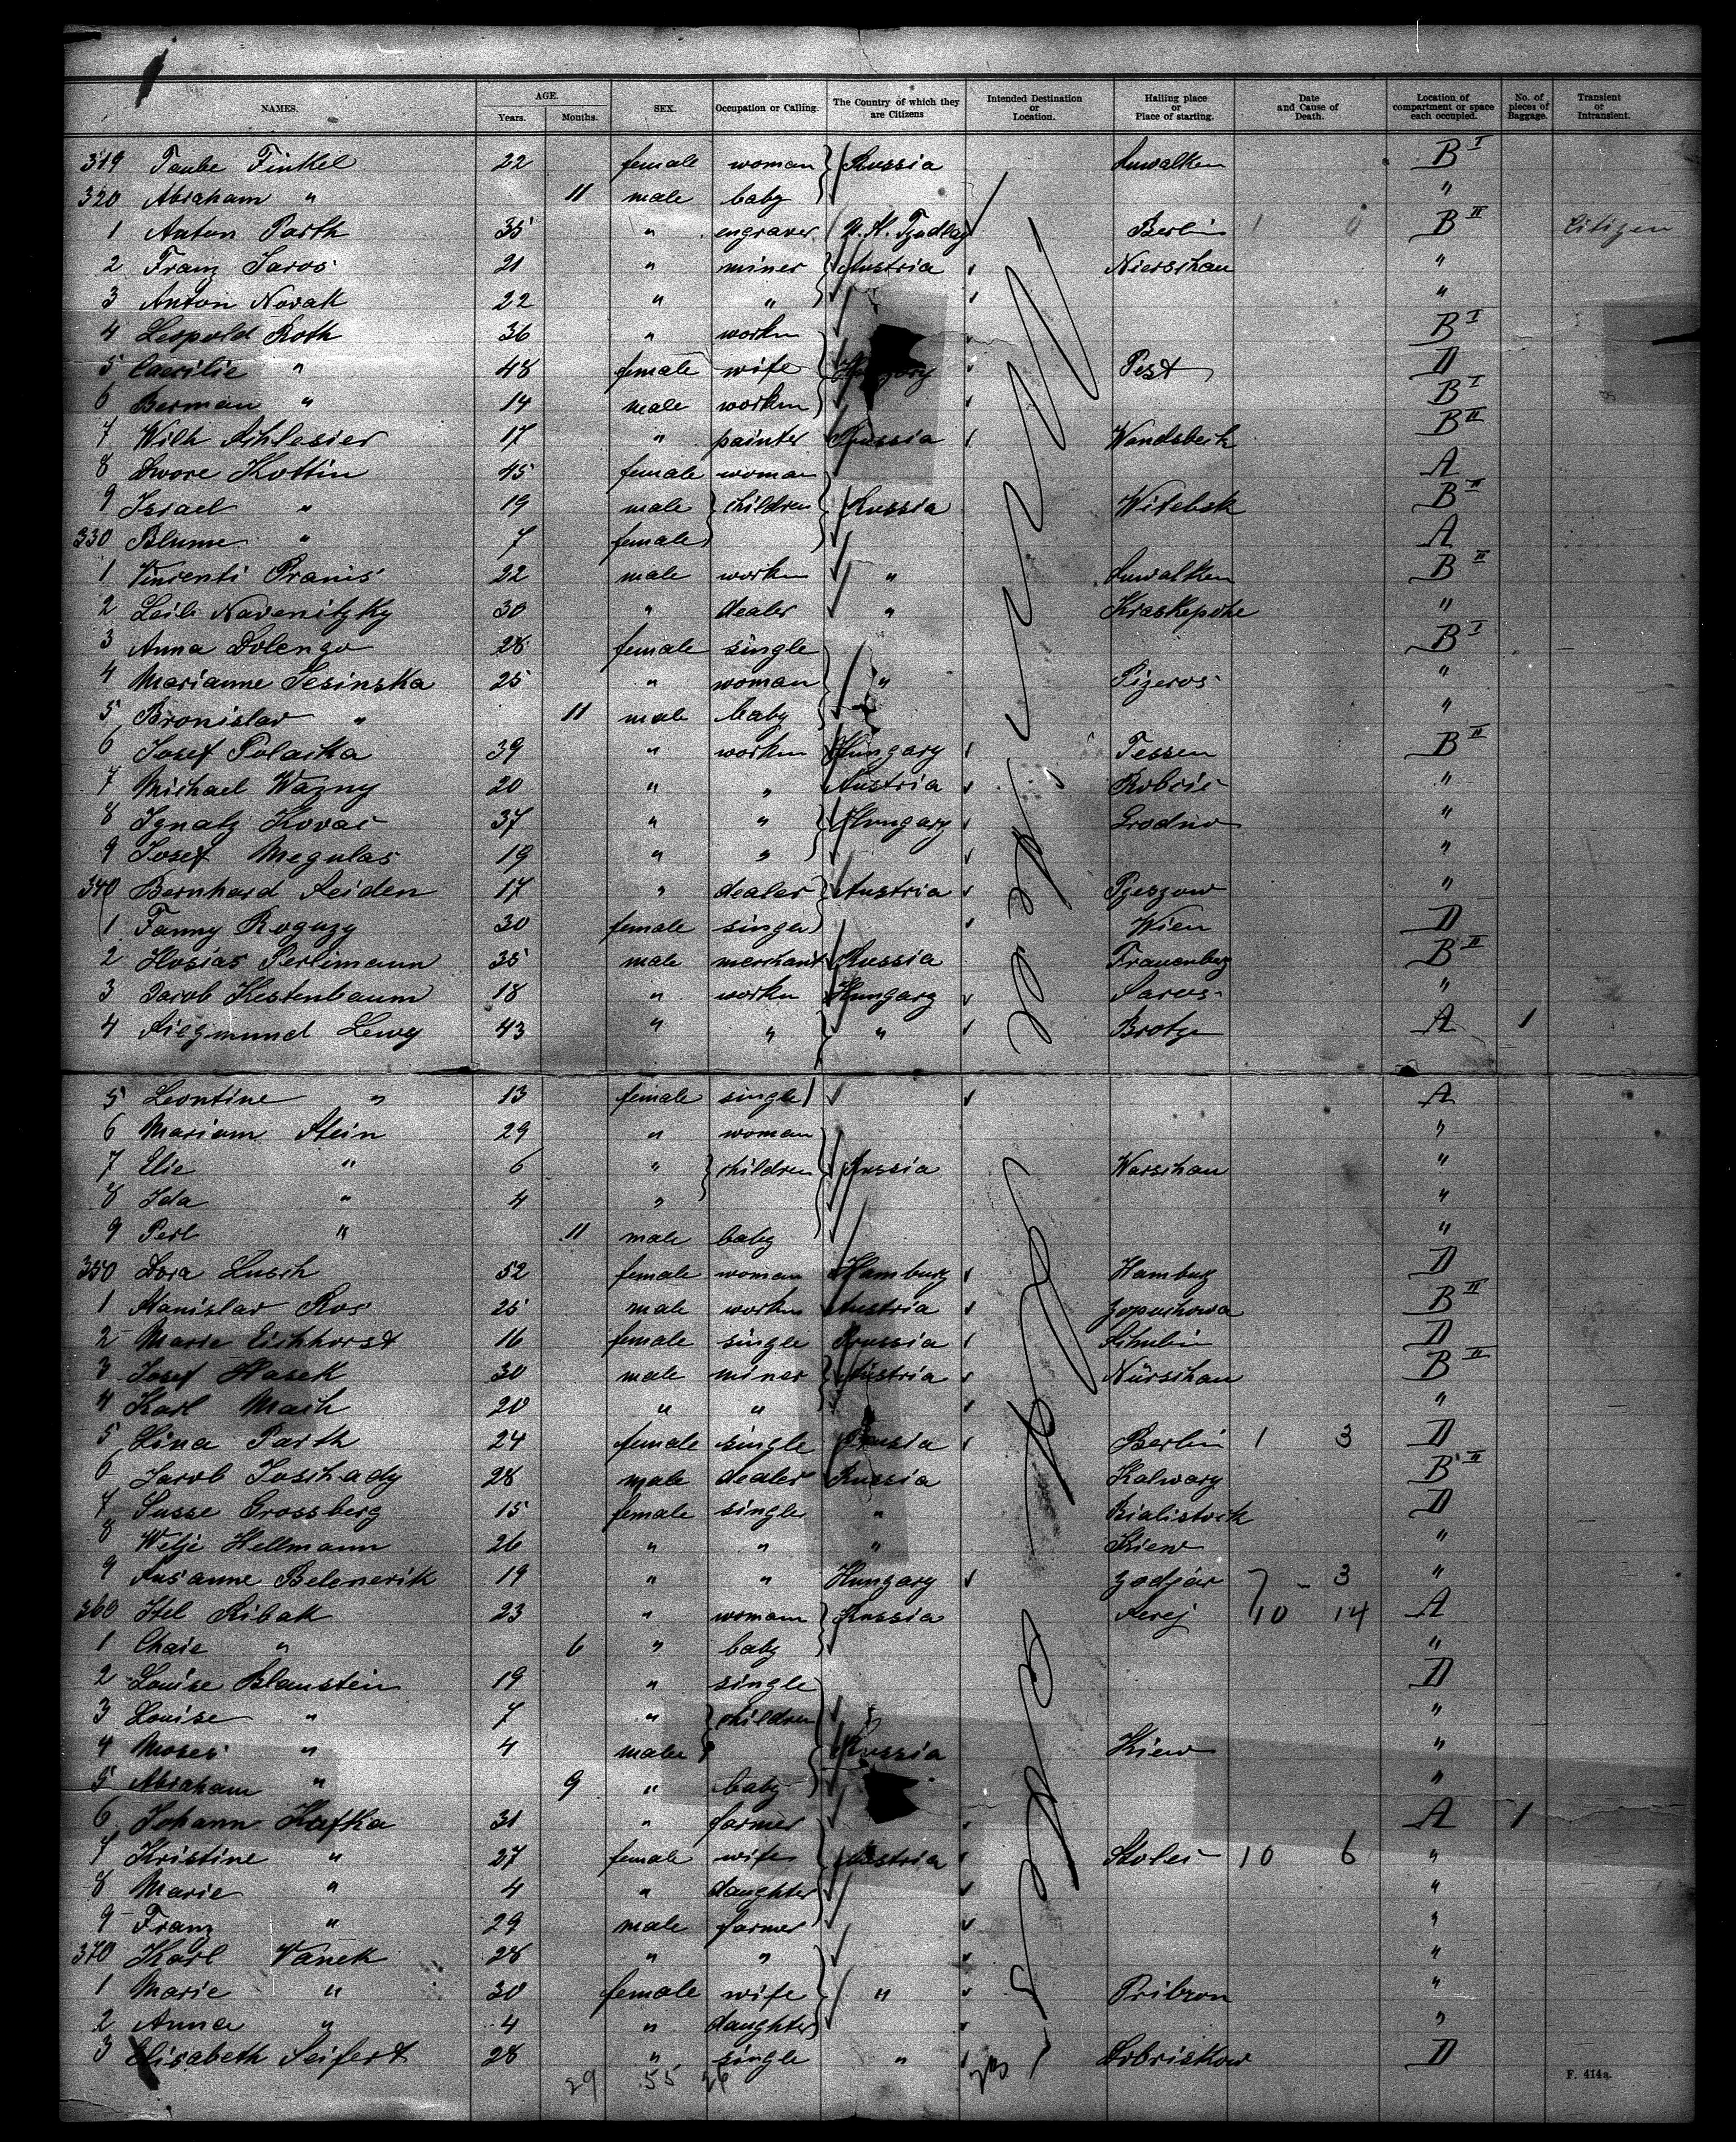 NAMES. AGE. Years. Months. SEX. Occupation or Calling. The Country of which they are Citizens Intended Destination or Location. Hailing place or Place of starting. Date and Cause of Death. Location of compartment or space each occupied. No. of pieces of Baggage. Transient or Intransient.
319 Taube Finkel 22 female woman Russia Suwalken B I
320 Abraham " 11 male baby "
1 Anton Parth 35 " engraver Berlin B II Citizen
2 Franz Jaros 21 " miner Austria Nierschau "
3 Anton Novak 22 " " "
4 Leopold Roth 36 " worker B I
5 Caecilie " 48 female wife Hungary Pest D
6 Berman " 14 male worker B I
7 Wilh Schlesier 17 " painter Prussia Wandsbeck B II
8 Dwore Kottin 45 female woman A
9 Israel " 19 male children Russia Witebsk B II
330 Blume " 7 female A
1 Vincenti Pranis 22 male worker " Suwalken B II
2 Leib Navenitzky 30 " dealer " "
3 Anna Dolengo 28 female single B I
4 Marianne Sesinska 25 " woman " Pizeros "
5 Bronislav " 11 male baby "
6 Josef Polacka 39 " worker Hungary Tessen B II
7 Michael Wazny 20 " " Austria "
8 Ignatz Kovac 37 " " Hungary Grodno "
9 Josef Megulas 19 " " "
340 Bernhard Seiden 17 " dealer Austria Rzeszow "
1 Fanny Roguzy 30 female singer Wien D
2 Hosias Perlimann 35 male merchant Russia Frauenberg B II
3 Jacob Kestenbaum 18 " worker Hungary Saros "
4 Siegmund Lewy 43 " " " A 1
5 Leontine " 13 female single A
6 Mariam Stein 29 " woman "
7 Elie " 6 " children Russia Warschau "
8 Ida " 4 " "
9 Perl " 11 male baby "
350 Dora Lusch 52 female woman Hamburg Hamburg D
1 Stanislav Ros 25 male worker Austria B II
2 Marie Eichhorst 16 female single Prussia Schubin D
3 Josef Hasek 30 male miner Austria Nürschau B II
4 Karl Mach 20 " " "
5 Lina Parth 24 female single Prussia Berlin 1 3 D
6 Jacob Joschady 28 male dealer Russia Kalwary B II
7 Susse Grossberg 15 female single " Bialistock D
8 Welje Hellmann 26 " " " Kiew "
9 Susanne Belenerik 19 " " Hungary Zadjar 7 - 3 "
360 Itel Ribak 23 " woman Russia Serej 10 14 A
1 Chaie " 6 " baby "
2 Louise Blaustein 19 " single D
3 Louise " 7 " children "
4 Moses " 4 male Russia Kiew "
5 Abraham " 9 " baby "
6 Johann Kafka 31 " farmer A 1
7 Kristine " 27 female wife Austria 10 6 "
8 Marie " 4 " daughter "
9 Franz " 29 male farmer "
370 Karl Vanek 28 " " "
1 Marie " 30 female wife " Pribran "
2 Anna " 4 " daughter "
3 Elisabeth Seifert 28 " single " Dobriskow D
29 55 26
F. 414a.